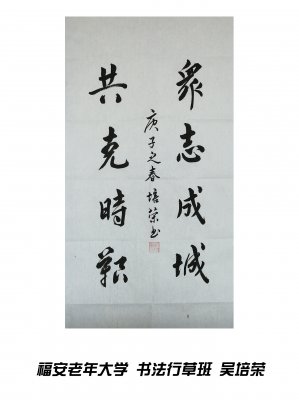 眾志成城
共克時艱
庚子之春培榮書
福安老年大学 书法行草班 吴培荣